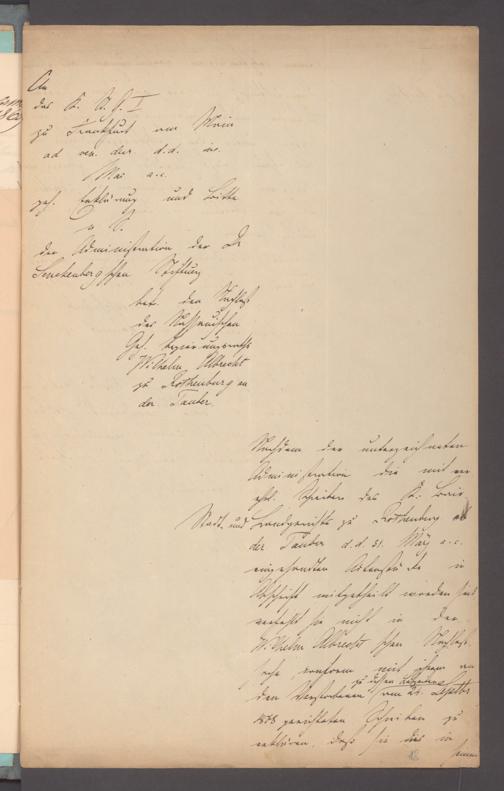 An
das K. A. G. I
zu Frankfurt am Main
ad ven. decr. d. d. 
Mai a. c.
geh. Erklärung und Bitte
der Administration der Dr
Senckenbergschen Stiftung
betr. den Nachlaß
des Nassauischen
Geh. Regierungsraths
Wilhelm Albrecht
zu Rothenburg an
der Tauber.
Nachdem der unterzeichneten
Administration die mit
Schreiben des K.
Stadt und Landgerichts zu Rothenburg an
der Tauber d. d. 31. März a. c.
eingesandten in
Abschrift mitgetheilt worden sind
verfehlt sie nicht in der
Wilhelm Albrecht'schen Nachlaß
sache, conform mit ihrem an
den Verstorbenen, am 21.
gerichteten Schreiben zu
erklären, daß sie das in